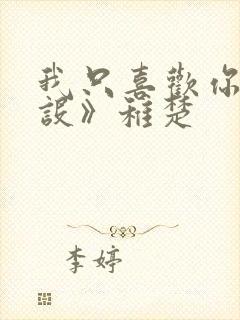 我只喜歡你
設》稚楚
李婷